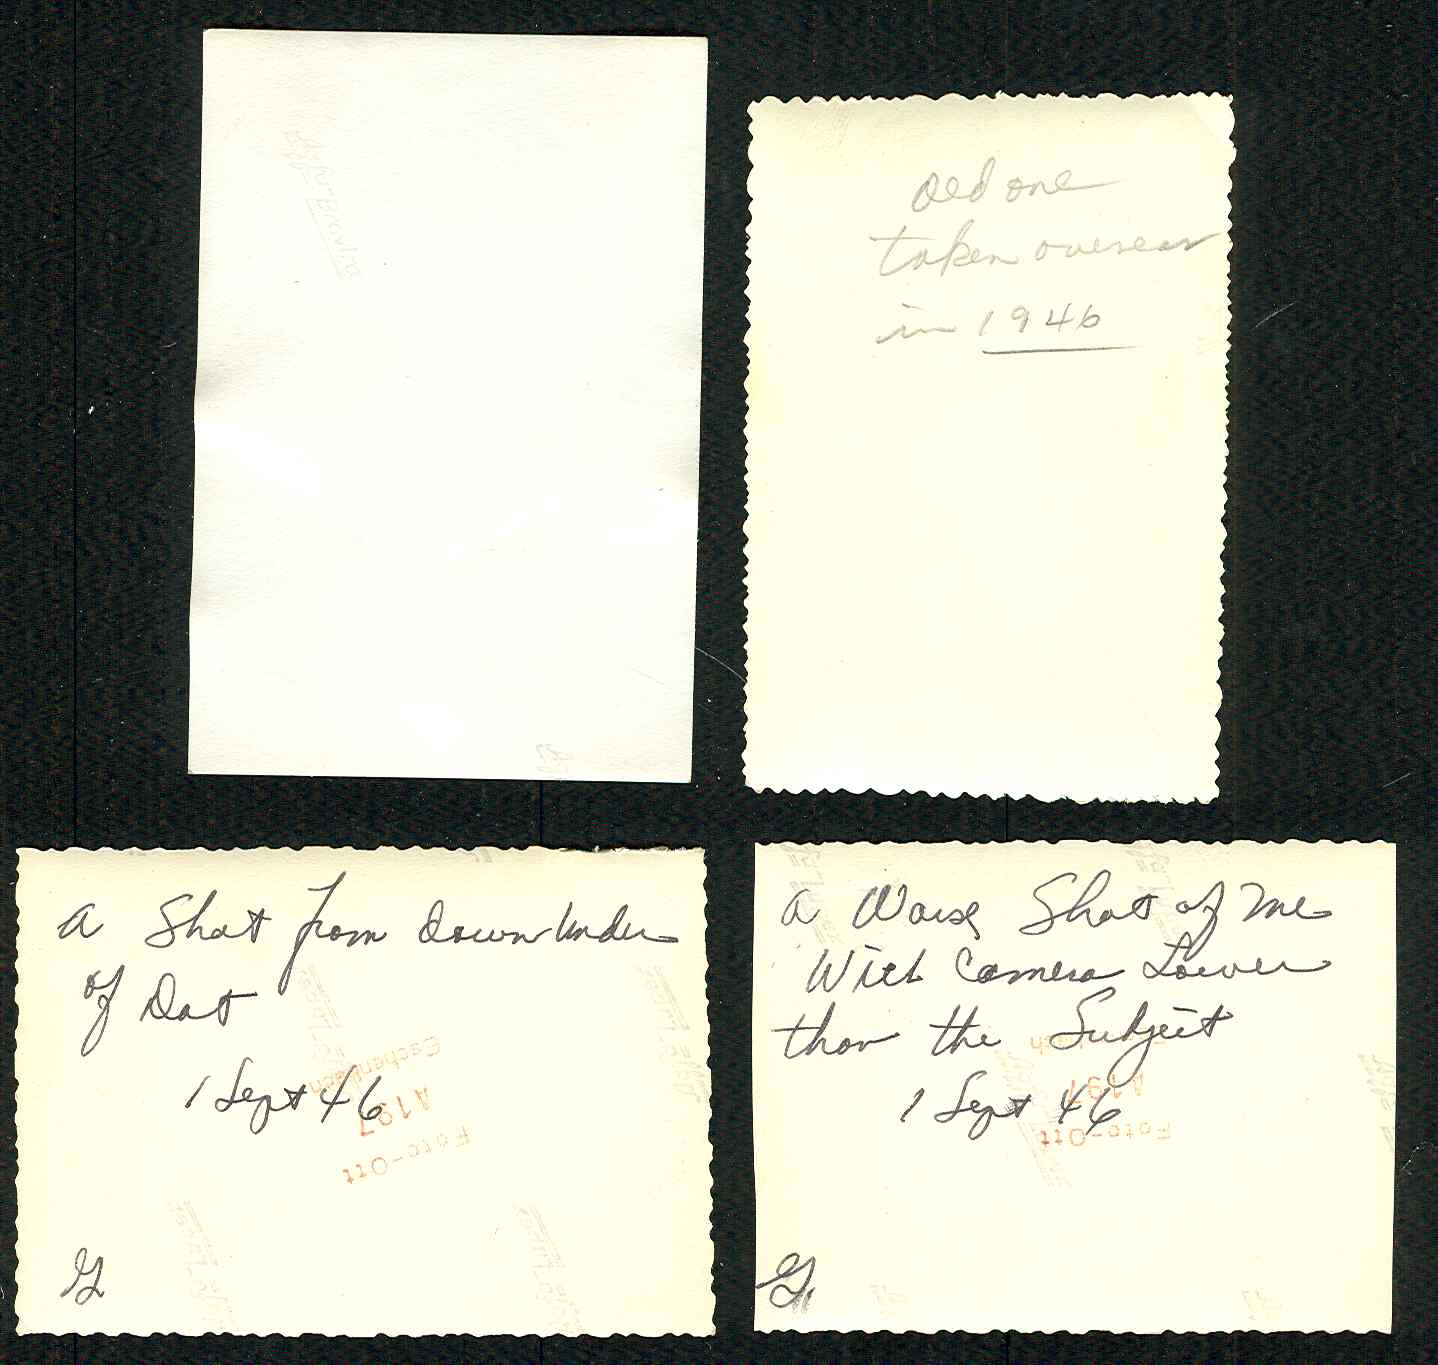 old one
taken overseas
in 1946
A Shot from down under
of Dot
1 Sept 46
Eschenbach
A197
Foto-Ott
G
A Worse Shot of Me
With Camera Lower
than the Subject
1 Sept 46
A197
Foto-Ott
G